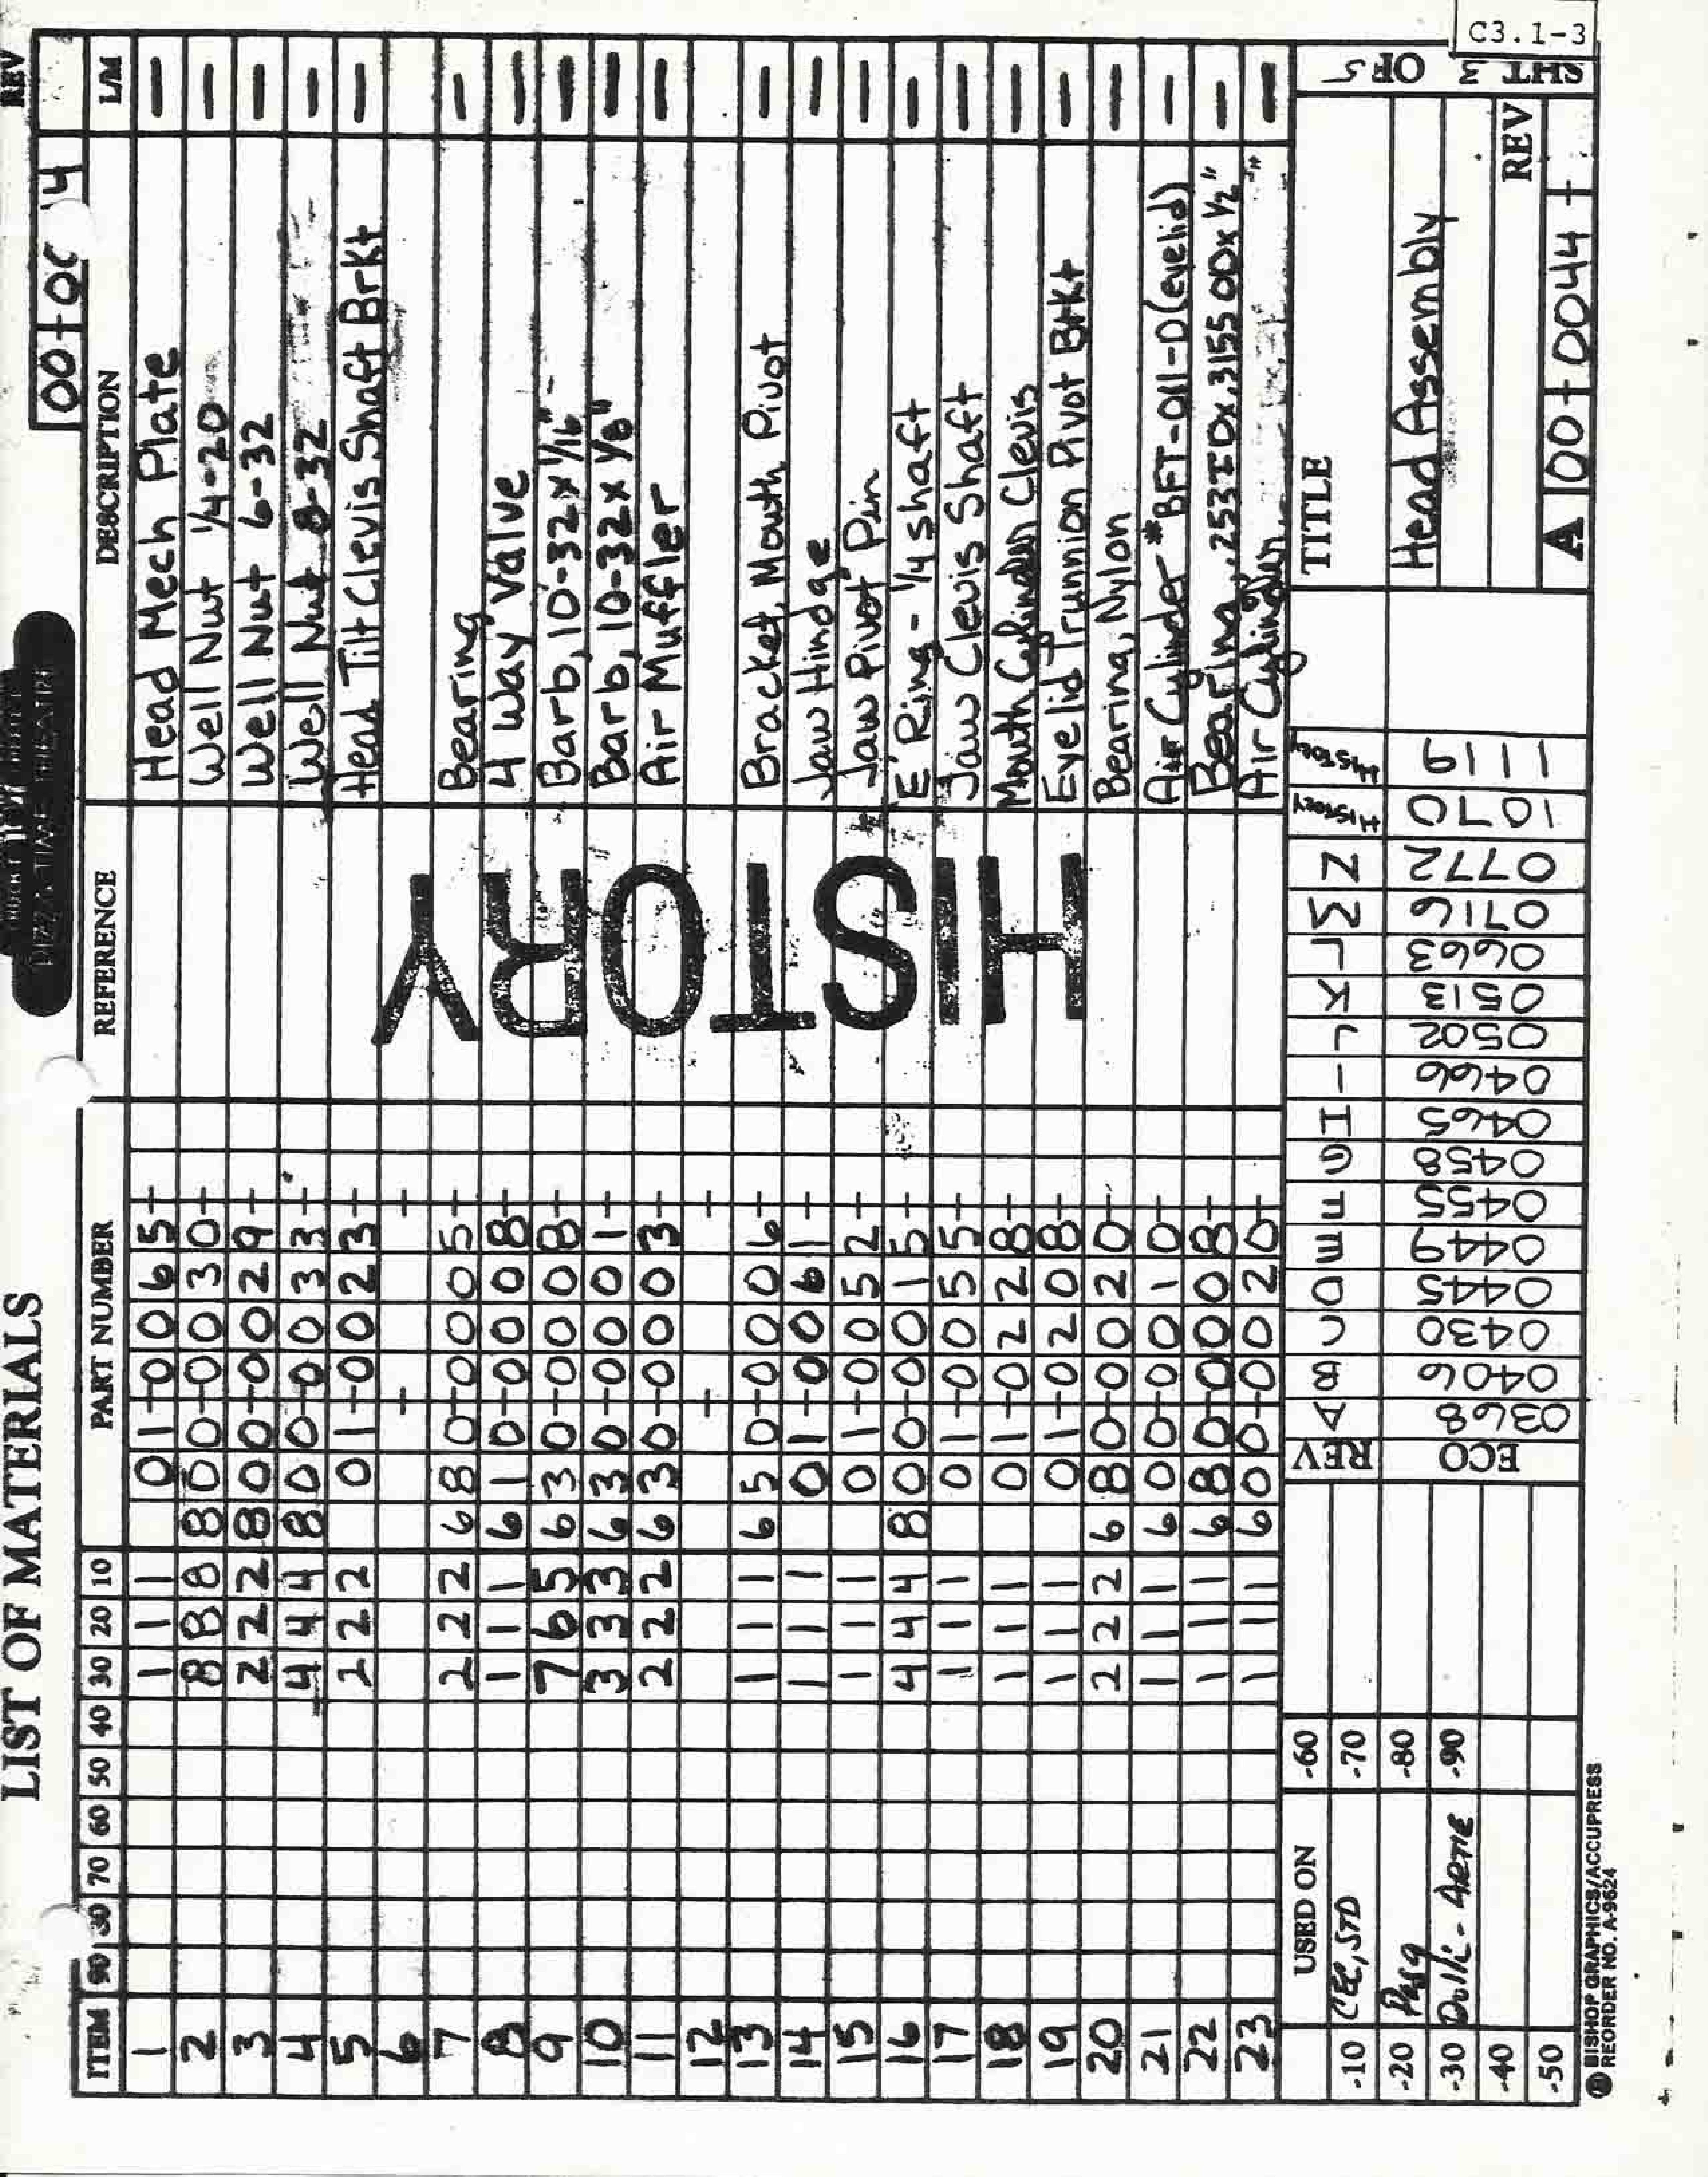 C3.1-3
LIST OF MATERIALS
00+00 44 REV
ITEM 90 80 70 60 50 40 30 20 10 PART NUMBER REFERENCE DESCRIPTION L/M
1 1 1 1 01-0065+ Head Mech Plate —
2 8 8 8 800-0030+ Well Nut 1/4-20 —
3 2 2 2 800-0029+ Well Nut 6-32 —
4 4 4 4 800-0033+ Well Nut 8-32 —
5 2 2 2 01-0023+ Head Tilt Clevis Shaft Brkt —
6 - +
7 2 2 2 680-0005+ Bearing —
8 1 1 1 610-0008+ 4 Way Valve —
9 7 6 5 630-0008+ Barb, 10-32 x 1/16" —
10 3 3 3 630-0001+ Barb, 10-32 x 1/8" —
11 2 2 2 630-0003+ Air Muffler —
12 - +
13 1 1 1 650-0006+ Bracket, Mouth Pivot —
14 1 1 1 01-0061+ Jaw Hindge —
15 1 1 1 01-0052+ Jaw Pivot Pin —
16 4 4 4 800-0015+ E' Ring - 1/4 shaft —
17 1 1 1 01-0055+ Jaw Clevis Shaft —
18 1 1 1 01-0228+ Mouth Cylinder Clevis —
19 1 1 1 01-0208+ Eyelid Trunnion Pivot Brkt —
20 2 2 2 680-0020+ Bearing, Nylon —
21 1 1 1 600-0010+ Air Cylinder #BFT-011-D (eyelid) —
22 1 1 1 680-0008+ Bearing, .253 ID x .3155 OD x 1/2" —
23 1 1 1 600-0020+ Air Cylinder —
HISTORY
USED ON
-10 CEC, STD -60
-20 -70
-30 -80
-40 -90
-50
REV A B C D E F G H I J K L M N HISTORY HISTORY
ECO 0368 0406 0430 0445 0449 0455 0458 0465 0466 0502 0513 0663 0716 0772 1070 1119
TITLE
Head Assembly
SHT 3 OF 5
REV
A 00+0044+
BISHOP GRAPHICS/ACCUPRESS
REORDER NO. A-9624